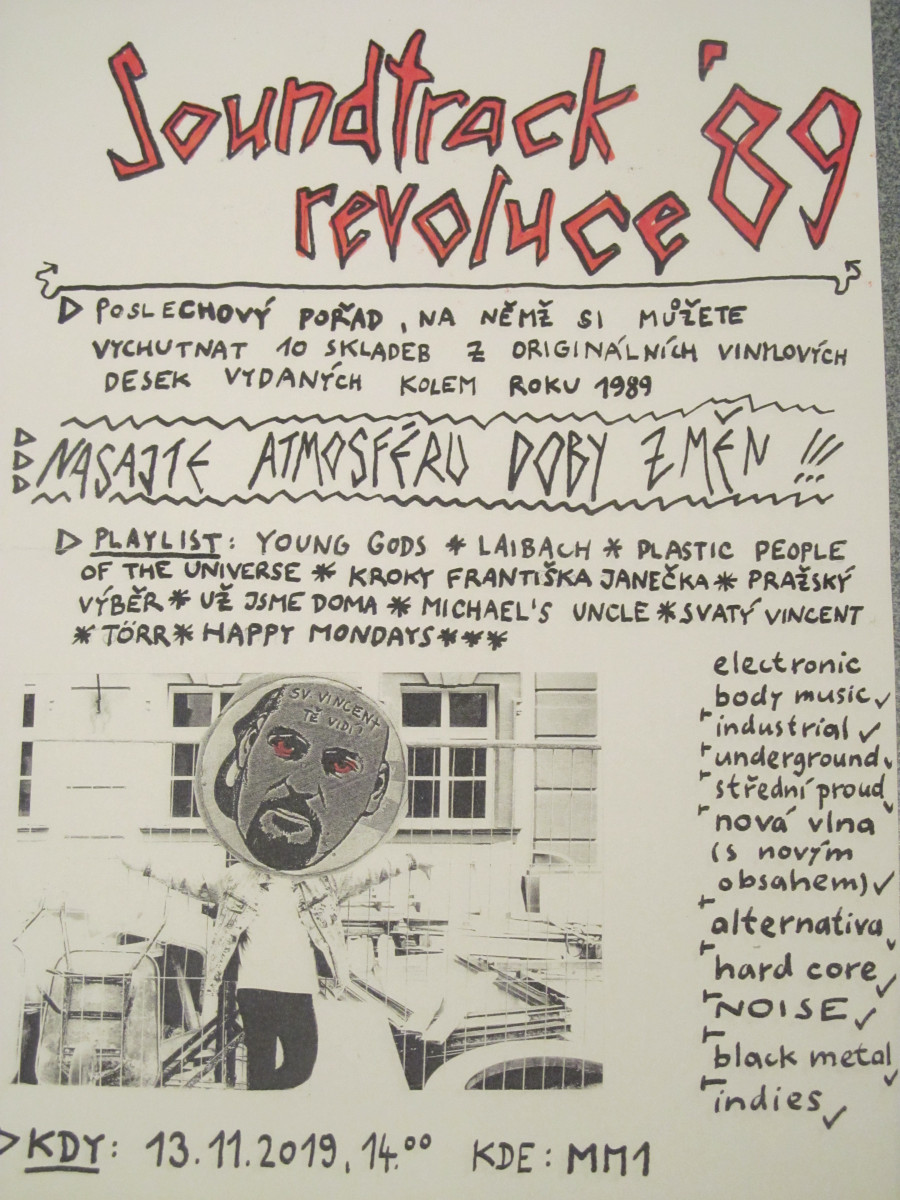 Soundtrack '89
revoluce
POSLECHOVÝ POŘAD, NA NĚMŽ SI MŮŽETE
VYCHUTNAT 10 SKLADEB Z ORIGINÁLNÍCH VINYLOVÝCH
DESEK VYDANÝCH KOLEM ROKU 1989
NASAJTE ATMOSFÉRU DOBY ZMĚN !!!
PLAYLIST: YOUNG GODS * LAIBACH * PLASTIC PEOPLE
OF THE UNIVERSE * KROKY FRANTIŠKA JANEČKA * PRAŽSKÝ
VÝBĚR * UŽ JSME DOMA * MICHAEL'S UNCLE * SVATÝ VINCENT
* TÖRR * HAPPY MONDAYS ***
SV. VINCENT
TĚ VIDÍ?
electronic
body music ✓
industrial ✓
underground ✓
střední proud ✓
nová vlna
(s novým
obsahem) ✓
alternativa ✓
hard core ✓
NOISE ✓
black metal ✓
indies ✓
KDY: 13.11.2019, 14.00 KDE: MM1